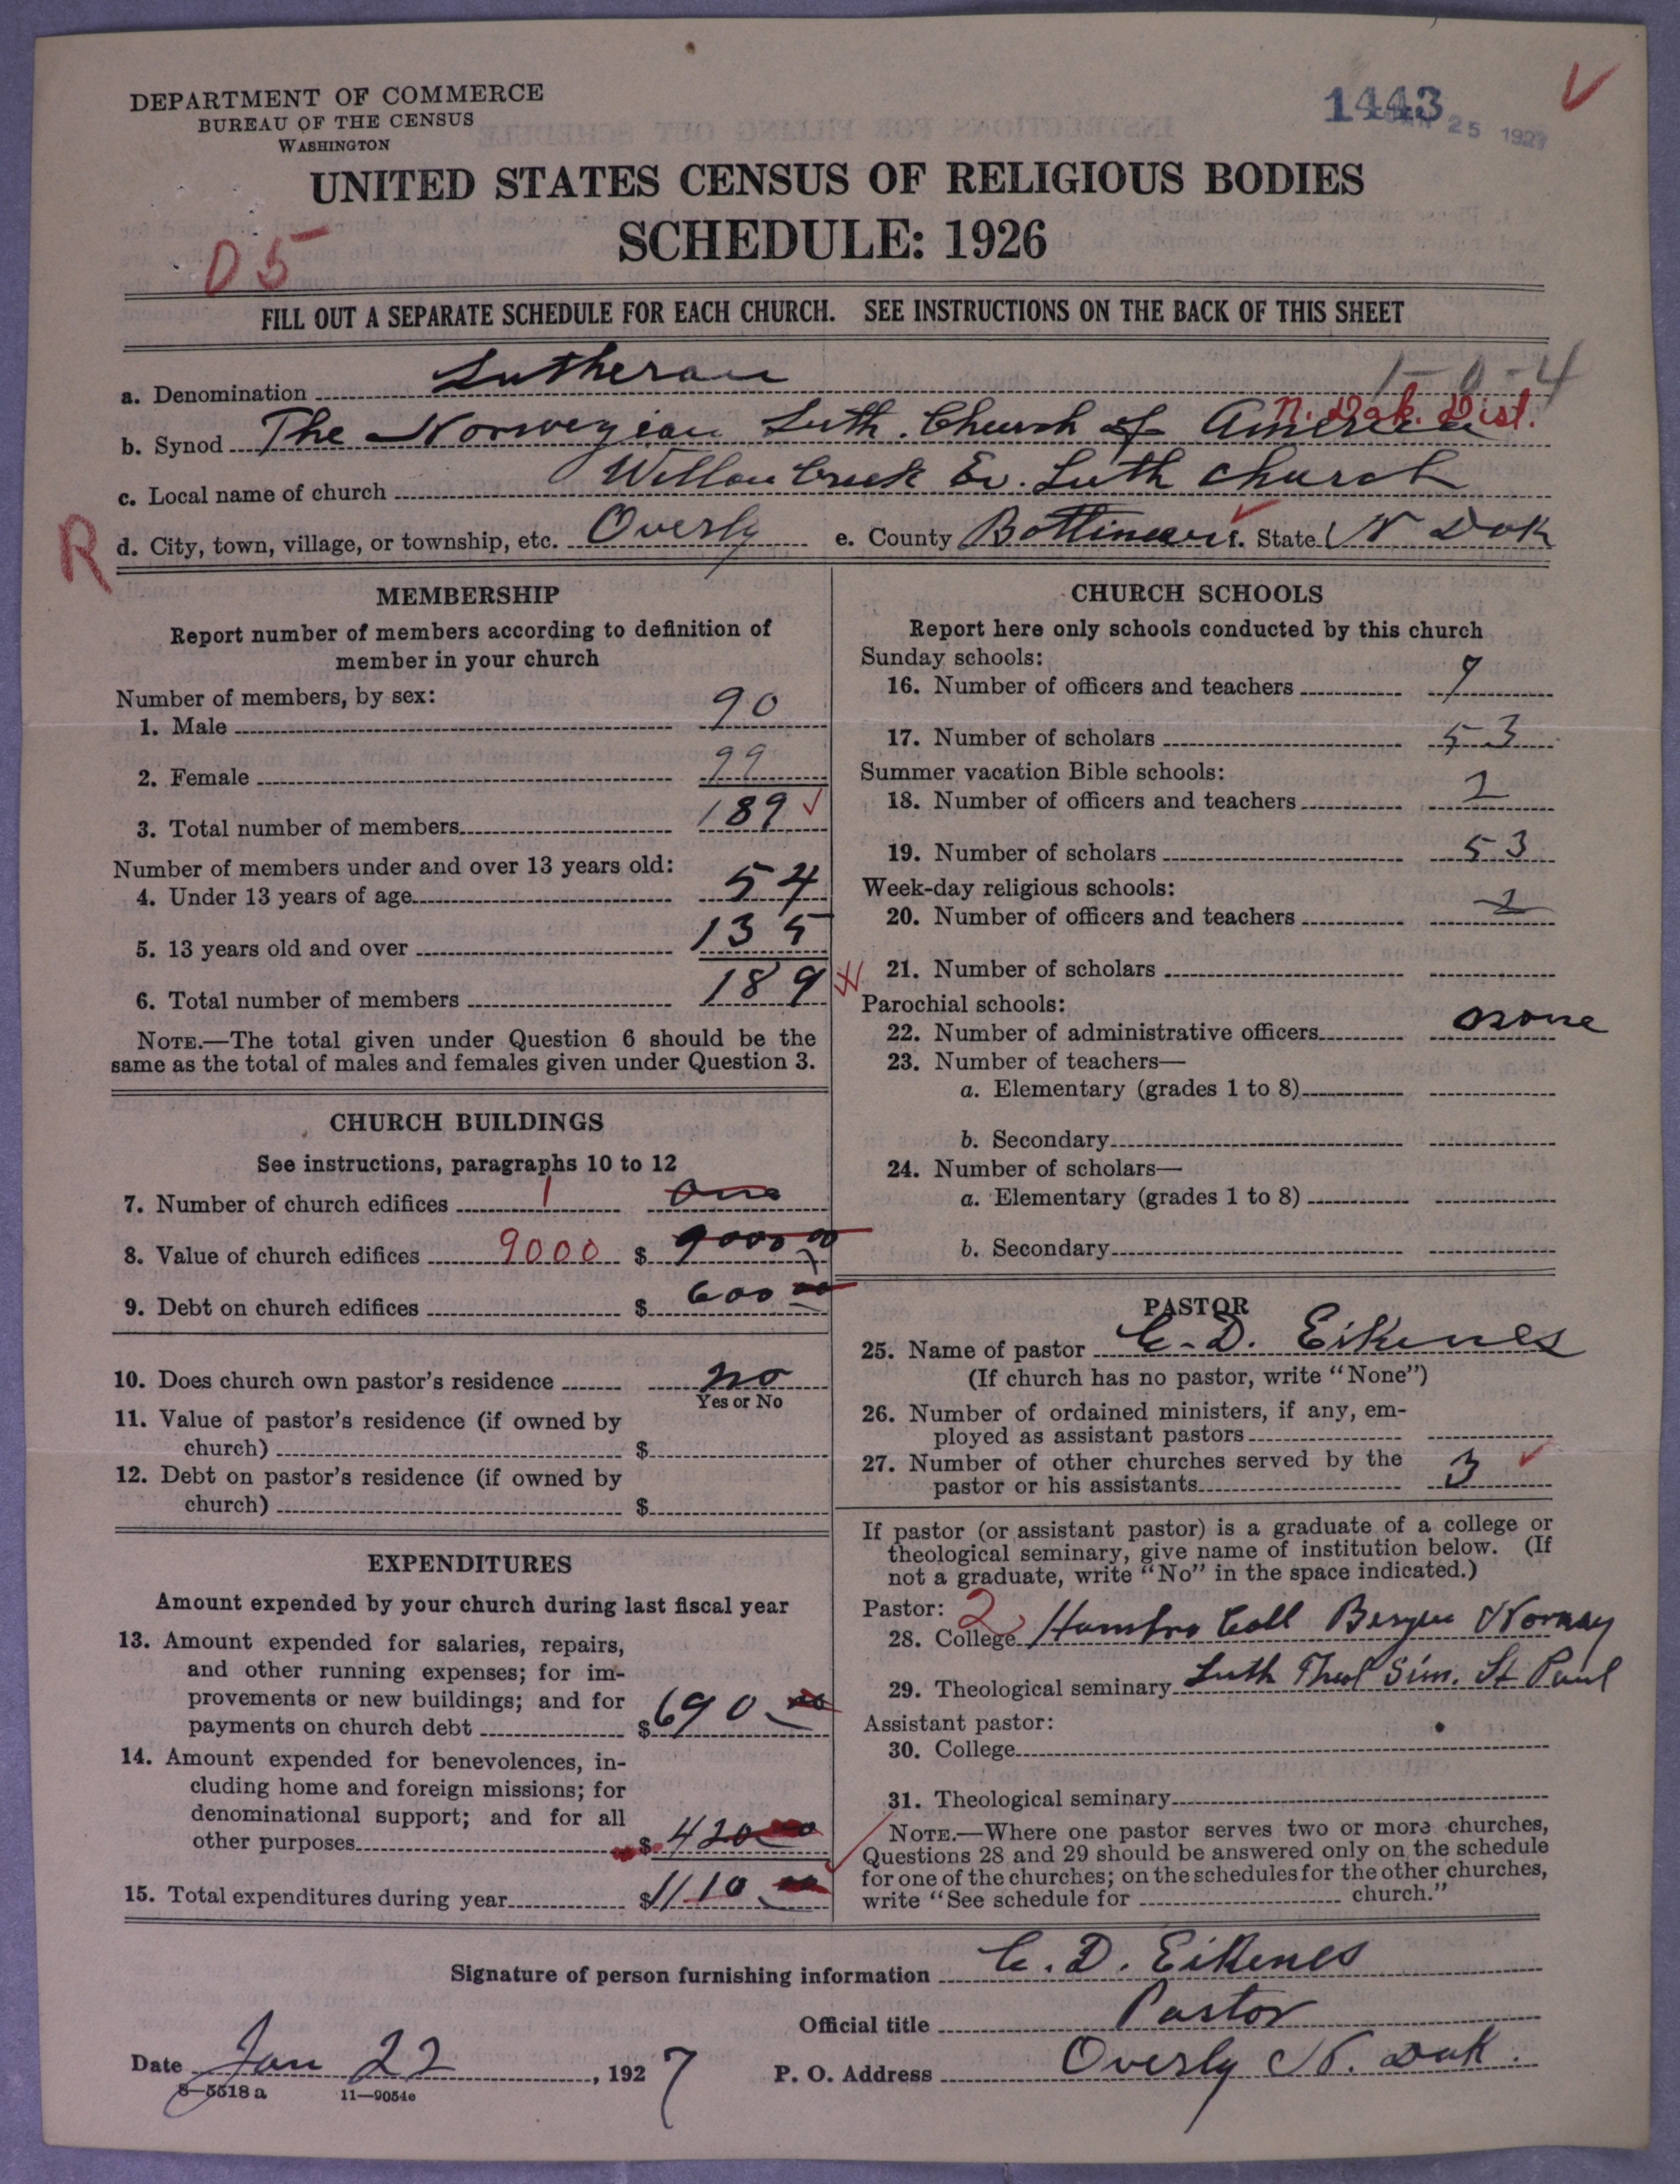 DEPARTMENT OF COMMERCE
BUREAU OF THE CENSUS
WASHINGTON
1443
JAN 25 1927
UNITED STATES CENSUS OF RELIGIOUS BODIES
SCHEDULE: 1926
05
FILL OUT A SEPARATE SCHEDULE FOR EACH CHURCH. SEE INSTRUCTIONS ON THE BACK OF THIS SHEET
1-0-4
a. Denomination Lutheran
N. Dak. Dist.
b. Synod The Norwegian Luth. Church of America
c. Local name of church Willow Creek Ev. Luth church
R
d. City, town, village, or township, etc. Overly e. County Bottineau f. State N Dak
MEMBERSHIP
Report number of members according to definition of
member in your church
Number of members, by sex:
1. Male 90
2. Female 99
3. Total number of members 189
Number of members under and over 13 years old:
4. Under 13 years of age 54
5. 13 years old and over 135
6. Total number of members 189
NOTE.—The total given under Question 6 should be the
same as the total of males and females given under Question 3.
CHURCH BUILDINGS
See instructions, paragraphs 10 to 12
7. Number of church edifices 1 One
8. Value of church edifices 9000 $ 9000 00
9. Debt on church edifices $ 600 00
10. Does church own pastor's residence no
Yes or No
11. Value of pastor's residence (if owned by
church) $
12. Debt on pastor's residence (if owned by
church) $
EXPENDITURES
Amount expended by your church during last fiscal year
13. Amount expended for salaries, repairs,
and other running expenses; for im-
provements or new buildings; and for
payments on church debt $ 690.00
14. Amount expended for benevolences, in-
cluding home and foreign missions; for
denominational support; and for all
other purposes $ 420 00
15. Total expenditures during year $ 1110.00
CHURCH SCHOOLS
Report here only schools conducted by this church
Sunday schools:
16. Number of officers and teachers
17. Number of scholars 53
Summer vacation Bible schools:
18. Number of officers and teachers 2
19. Number of scholars 53
Week-day religious schools:
20. Number of officers and teachers
21. Number of scholars
Parochial schools:
22. Number of administrative officers none
23. Number of teachers—
a. Elementary (grades 1 to 8)
b. Secondary
24. Number of scholars—
a. Elementary (grades 1 to 8)
b. Secondary
PASTOR
25. Name of pastor C. D. Eikenes
(If church has no pastor, write "None")
26. Number of ordained ministers, if any, em-
ployed as assistant pastors
27. Number of other churches served by the
pastor or his assistants 3
If pastor (or assistant pastor) is a graduate of a college or
theological seminary, give name of institution below. (If
not a graduate, write "No" in the space indicated.)
Pastor: 2
28. College Hambro Coll Bergen Norway
29. Theological seminary Luth Theol Sim. St Paul
Assistant pastor:
30. College
31. Theological seminary
NOTE.—Where one pastor serves two or more churches,
Questions 28 and 29 should be answered only on the schedule
for one of the churches; on the schedules for the other churches,
write "See schedule for church."
Signature of person furnishing information C. D. Eikenes
Official title Pastor
Date Jan 22, 1927 P. O. Address Overly N. Dak.
8—5518 a 11—9054e